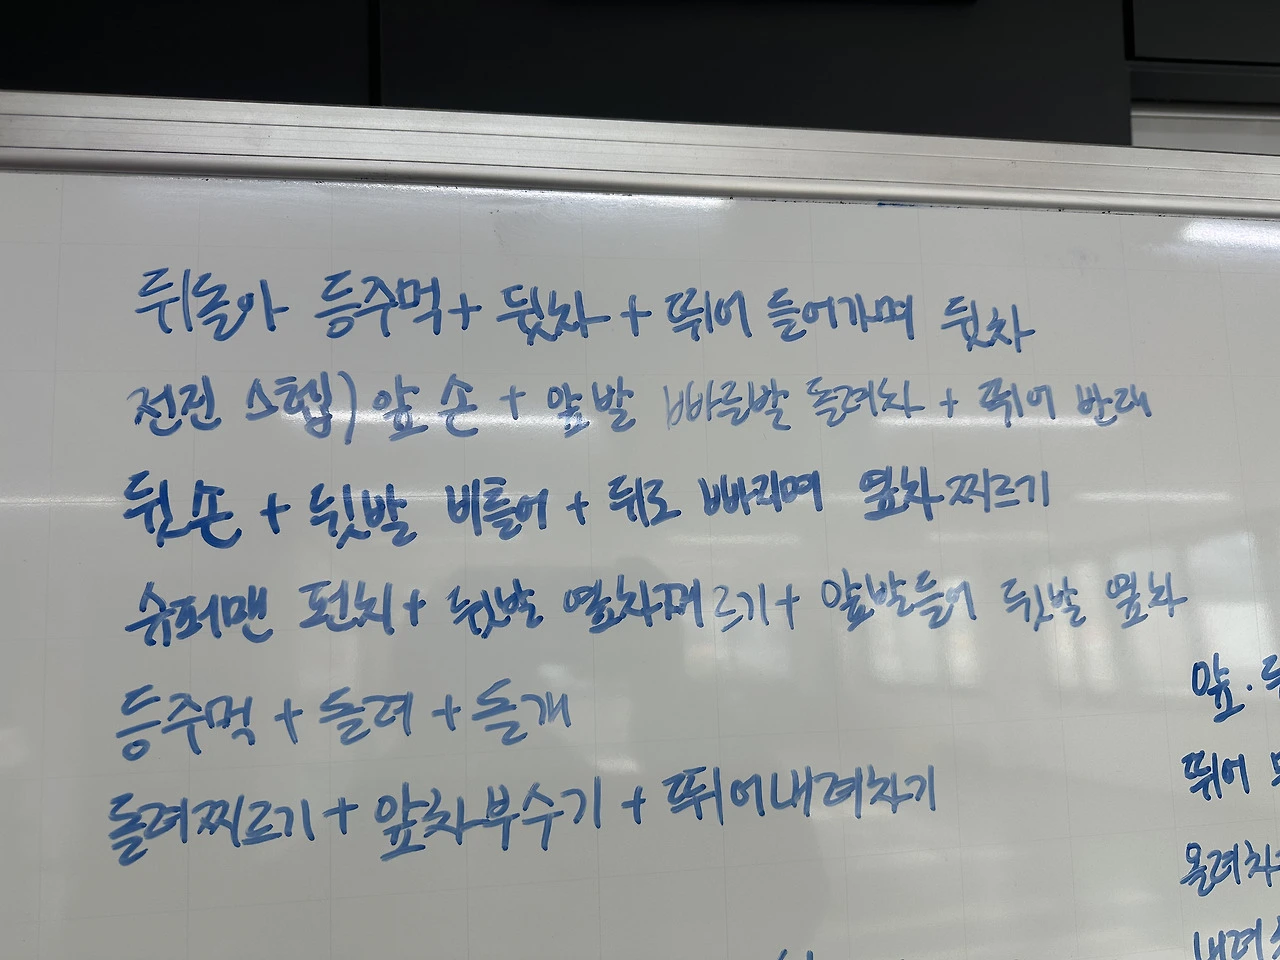 뒤돌아 등주먹 + 뒷차 + 뛰어 들어가며 뒷차
전진 스텝) 앞 손 + 앞 발 빠른발 돌려차 + 뛰어 반대
뒷손 + 뒷발 비틀어 + 뒤로 빠지며 옆차찌르기
슈퍼맨 펀치 + 뒷발 옆차찌르기 + 앞발들어 뒷발 옆차
등주먹 + 돌려 + 돌개
돌려찌르기 + 앞차부수기 + 뛰어내려차기
앞·
뛰어
올려차
내려